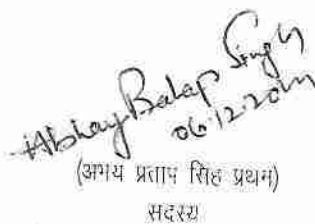 Abhay Pratap Singh
06.12.2014
(अभय प्रताप सिंह प्रथम)
सदस्य